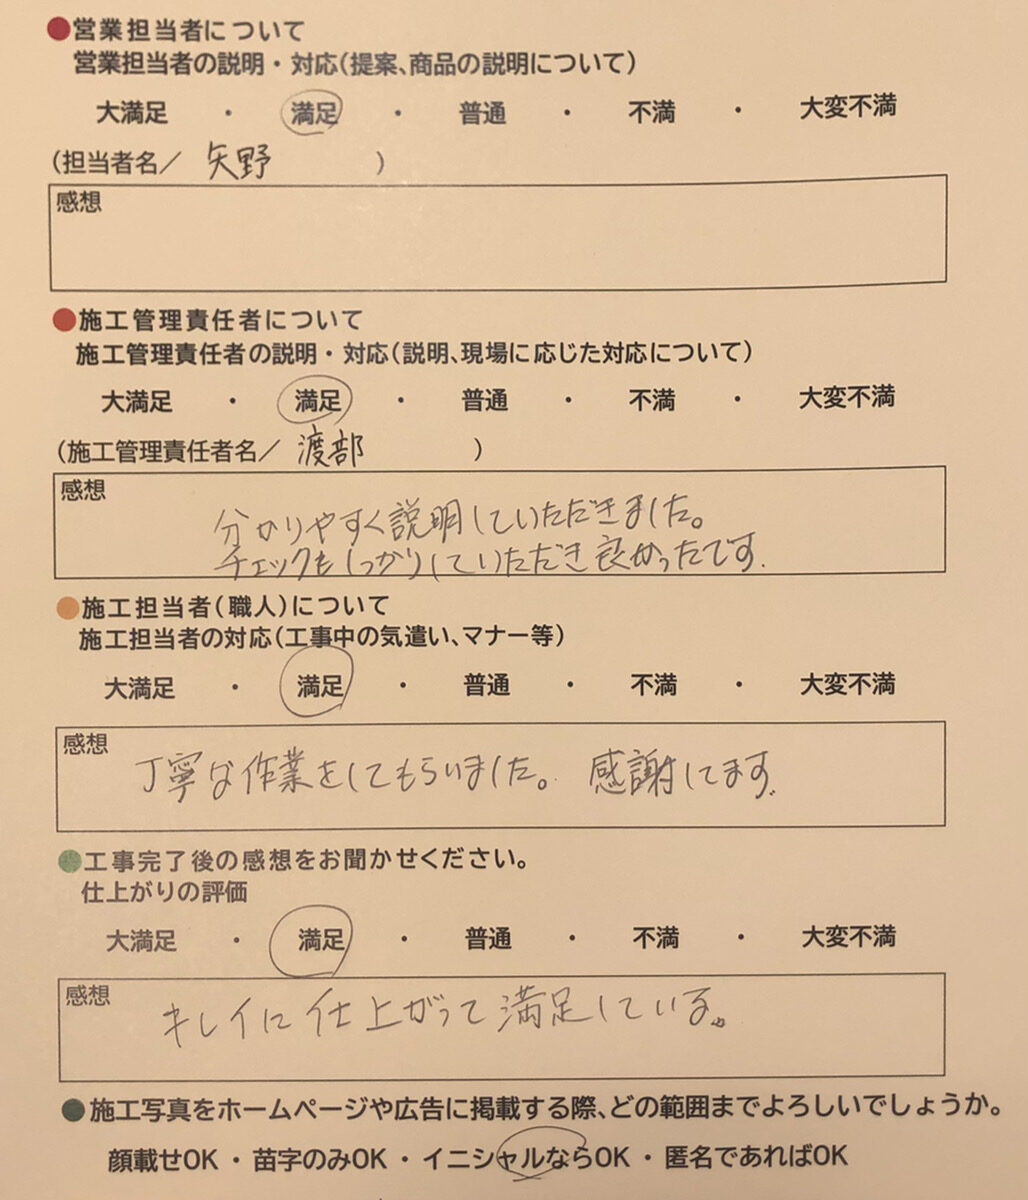 ●営業担当者について
営業担当者の説明・対応(提案、商品の説明について)
大満足 ・ 満足 ・ 普通 ・ 不満 ・ 大変不満
(担当者名/ 矢野 )
感想
●施工管理責任者について
施工管理責任者の説明・対応(説明、現場に応じた対応について)
大満足 ・ 満足 ・ 普通 ・ 不満 ・ 大変不満
(施工管理責任者名/ 渡部 )
感想
分かりやすく説明していただきました。
チェックもしっかりしていただき良かったです.
●施工担当者(職人)について
施工担当者の対応(工事中の気遣い、マナー等)
大満足 ・ 満足 ・ 普通 ・ 不満 ・ 大変不満
感想
丁寧な作業をしてもらいました。 感謝してます.
●工事完了後の感想をお聞かせください。
仕上がりの評価
大満足 ・ 満足 ・ 普通 ・ 不満 ・ 大変不満
感想
キレイに仕上がって満足している。
●施工写真をホームページや広告に掲載する際、どの範囲までよろしいでしょうか。
顔載せOK ・ 苗字のみOK ・ イニシャルならOK ・ 匿名であればOK